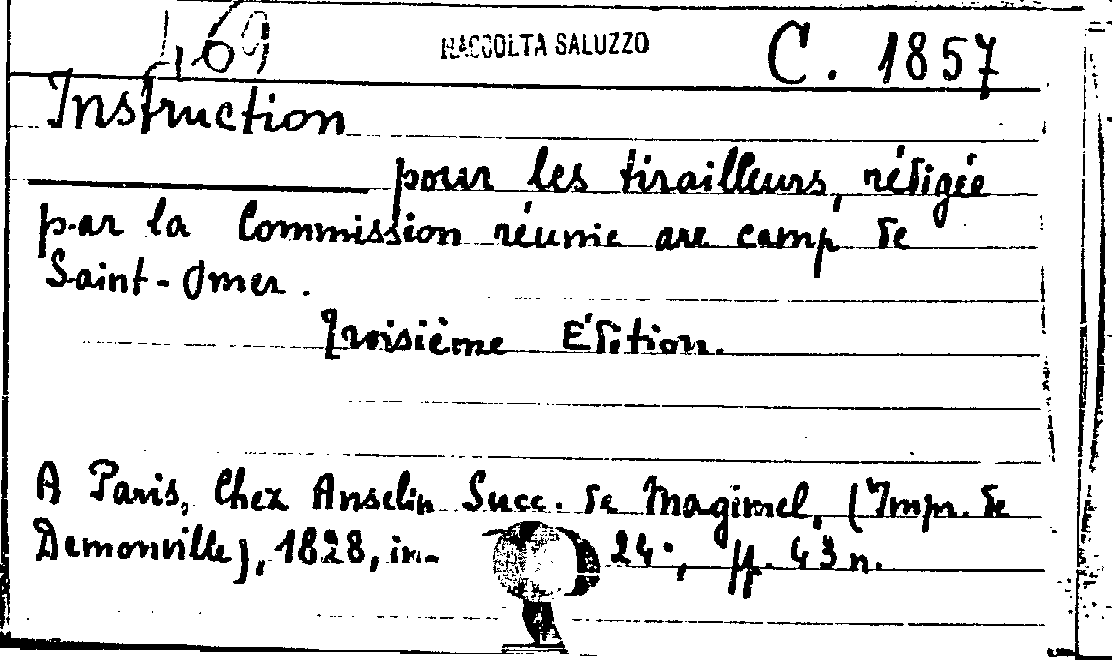 469 RACCOLTA SALUZZO C. 1857
Instruction
pour les tirailleurs, rédigée
par la Commission réunie au camp de
Saint-Omer.
Troisième Edition.
A Paris, Chez Anselin Succ. de Magimel, (Impr. de
Demonville), 1828, in-24°, ff. 43 n.